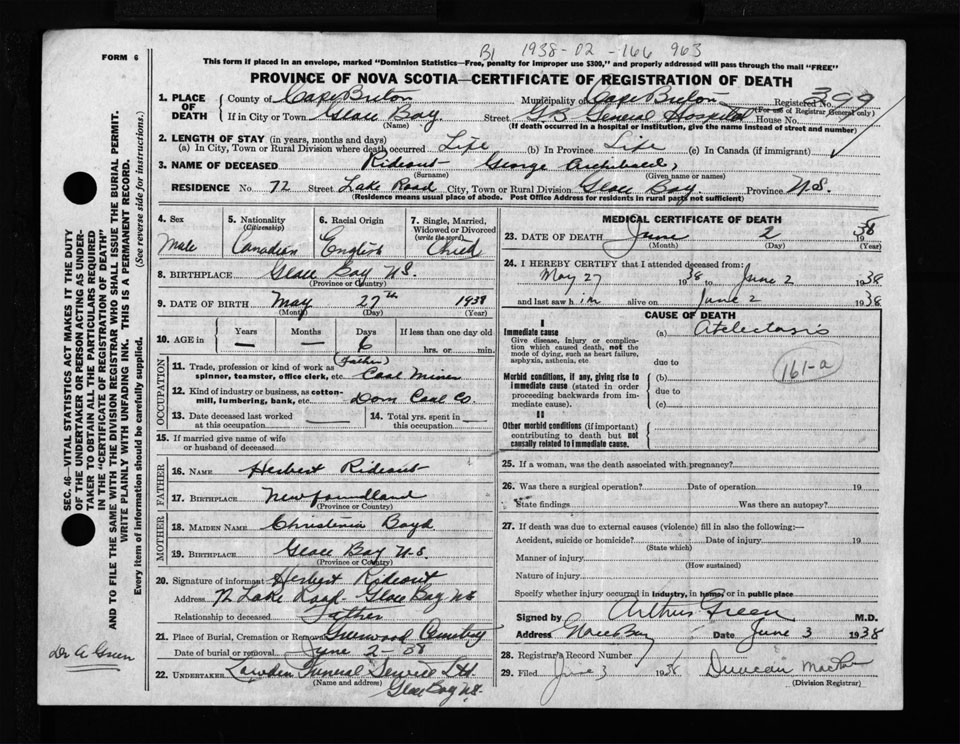 B1 1938-02-166 963
FORM 6
This form if placed in an envelope, marked "Dominion Statistics—Free, penalty for improper use $300," and properly addressed will pass through the mail "FREE"
PROVINCE OF NOVA SCOTIA—CERTIFICATE OF REGISTRATION OF DEATH
1. PLACE OF DEATH
County of Cape Breton Municipality of Cape Breton Registered No. 309
(For use of Registrar General only)
If in City or Town Glace Bay Street G.B General Hospital House No.
(Name) (If death occurred in a hospital or institution, give the name instead of street and number)
2. LENGTH OF STAY (in years, months and days)
(a) In City, Town or Rural Division where death occurred Life (b) In Province Life (c) In Canada (if immigrant)
3. NAME OF DECEASED Rideout George Archibald
(Surname) (Given name or names)
RESIDENCE No. 72 Street Lake Road City, Town or Rural Division Glace Bay Province N.S.
(Residence means usual place of abode. Post Office Address for residents in rural parts not sufficient)
4. Sex Male
5. Nationality (Citizenship) Canadian
6. Racial Origin English
7. Single, Married, Widowed or Divorced (write the word) Child
8. BIRTHPLACE Glace Bay N.S.
(Province or Country)
9. DATE OF BIRTH May 27th 1938
(Month) (Day) (Year)
10. AGE in Years — Months — Days 6 If less than one day old hrs. or min.
OCCUPATION
(Father)
11. Trade, profession or kind of work as spinner, teamster, office clerk, etc. Coal Miner
12. Kind of industry or business, as cotton-mill, lumbering, bank, etc. Dom Coal Co.
13. Date deceased last worked at this occupation
14. Total yrs. spent in this occupation
15. If married give name of wife or husband of deceased
FATHER
16. NAME Herbert Rideout
17. BIRTHPLACE Newfoundland
(Province or Country)
MOTHER
18. MAIDEN NAME Christenia Boyd
19. BIRTHPLACE Glace Bay N.S.
(Province or Country)
20. Signature of informant Herbert Rideout
Address 72 Lake Road Glace Bay NS
Relationship to deceased Father
21. Place of Burial, Cremation or Removal Greenwood Cemetery
Date of burial or removal June 2-38
22. UNDERTAKER Lowden Funeral Service Ltd
(Name and address) Glace Bay N.S.
MEDICAL CERTIFICATE OF DEATH
23. DATE OF DEATH June 2 1938
(Month) (Day) (Year)
24. I HEREBY CERTIFY that I attended deceased from:
May 27 1938 to June 2 1938
and last saw him alive on June 2 1938
CAUSE OF DEATH
I
Immediate cause (a) Atelectasis
Give disease, injury or complication which caused death, not the mode of dying, such as heart failure, asphyxia, asthenia, etc.
due to
161-a
Morbid conditions, if any, giving rise to immediate cause (stated in order proceeding backwards from immediate cause).
(b)
due to
(c)
II
Other morbid conditions (if important) contributing to death but not causally related to immediate cause.
25. If a woman, was the death associated with pregnancy?
26. Was there a surgical operation? Date of operation 19
State findings Was there an autopsy?
27. If death was due to external causes (violence) fill in also the following:—
Accident, suicide or homicide? Date of injury 19
(State which)
Manner of injury
(How sustained)
Nature of injury
Specify whether injury occurred in industry, in home, or in public place
Signed by Arthur Green M.D.
Address Glace Bay Date June 3 1938
28. Registrar's Record Number
29. Filed June 3 1938 Duncan
(Division Registrar)
SEC. 46—VITAL STATISTICS ACT MAKES IT THE DUTY
OF THE UNDERTAKER OR PERSON ACTING AS UNDER-
TAKER TO OBTAIN ALL THE PARTICULARS REQUIRED
IN THE "CERTIFICATE OF REGISTRATION OF DEATH"
AND TO FILE THE SAME WITH THE DIVISION REGISTRAR WHO SHALL ISSUE THE BURIAL PERMIT.
WRITE PLAINLY WITH UNFADING INK. THIS IS A PERMANENT RECORD.
Every item of information should be carefully supplied. (See reverse side for instructions.)
Dr A Green